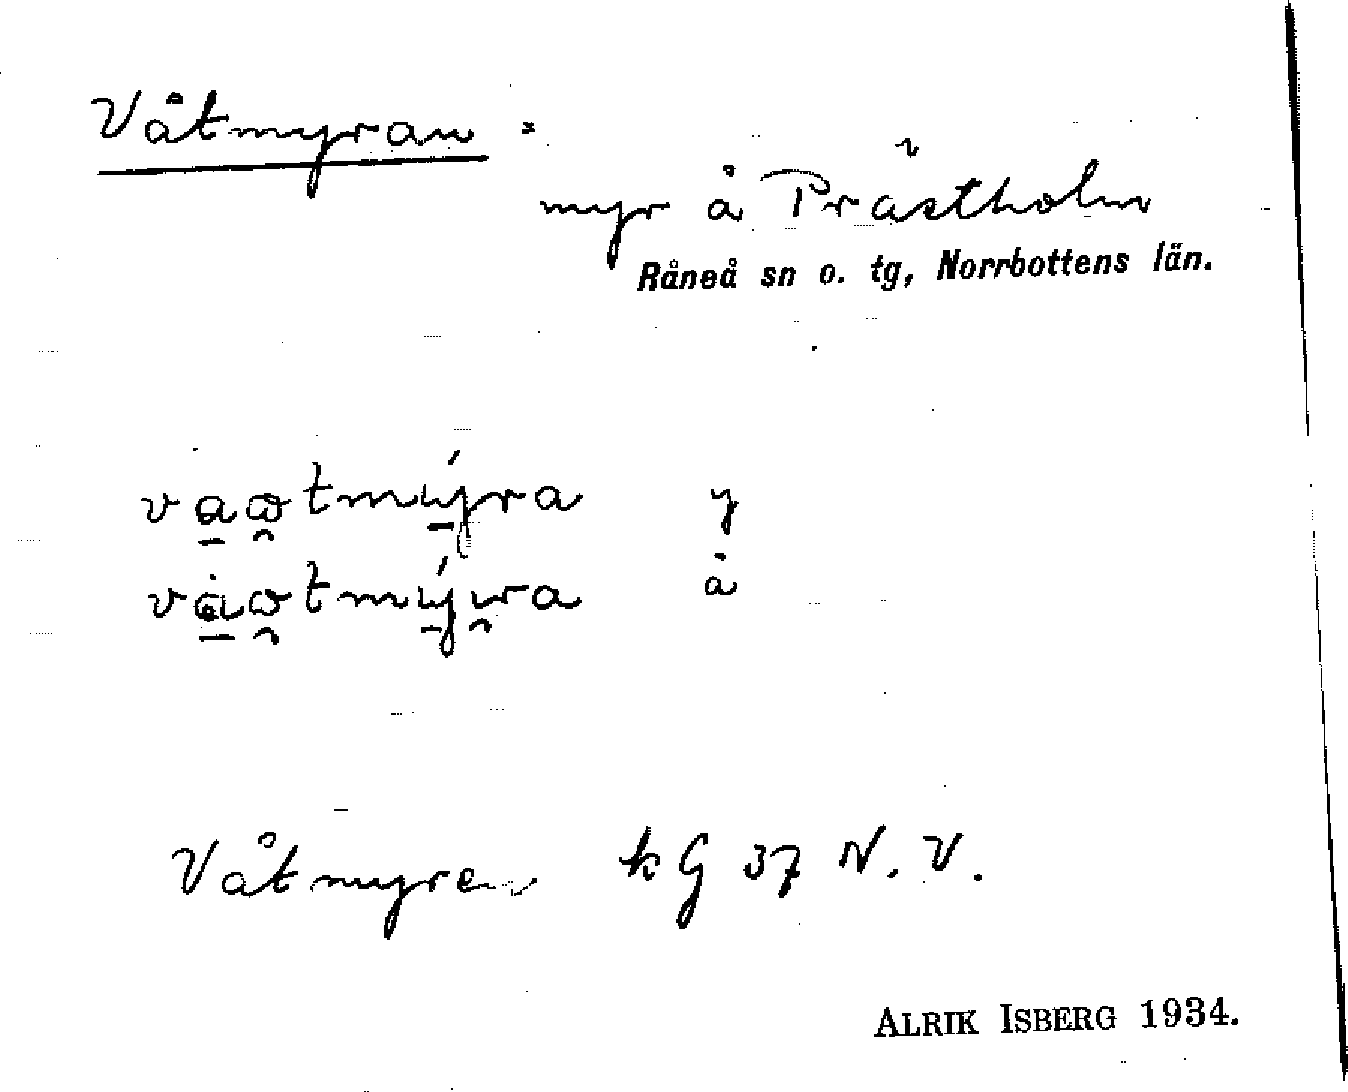 Våtmyran :
myr å Prästholm
Råneå sn o. tg, Norrbottens län.
y
å
Våtmyren kG 37 N. V.
ALRIK ISBERG 1934.